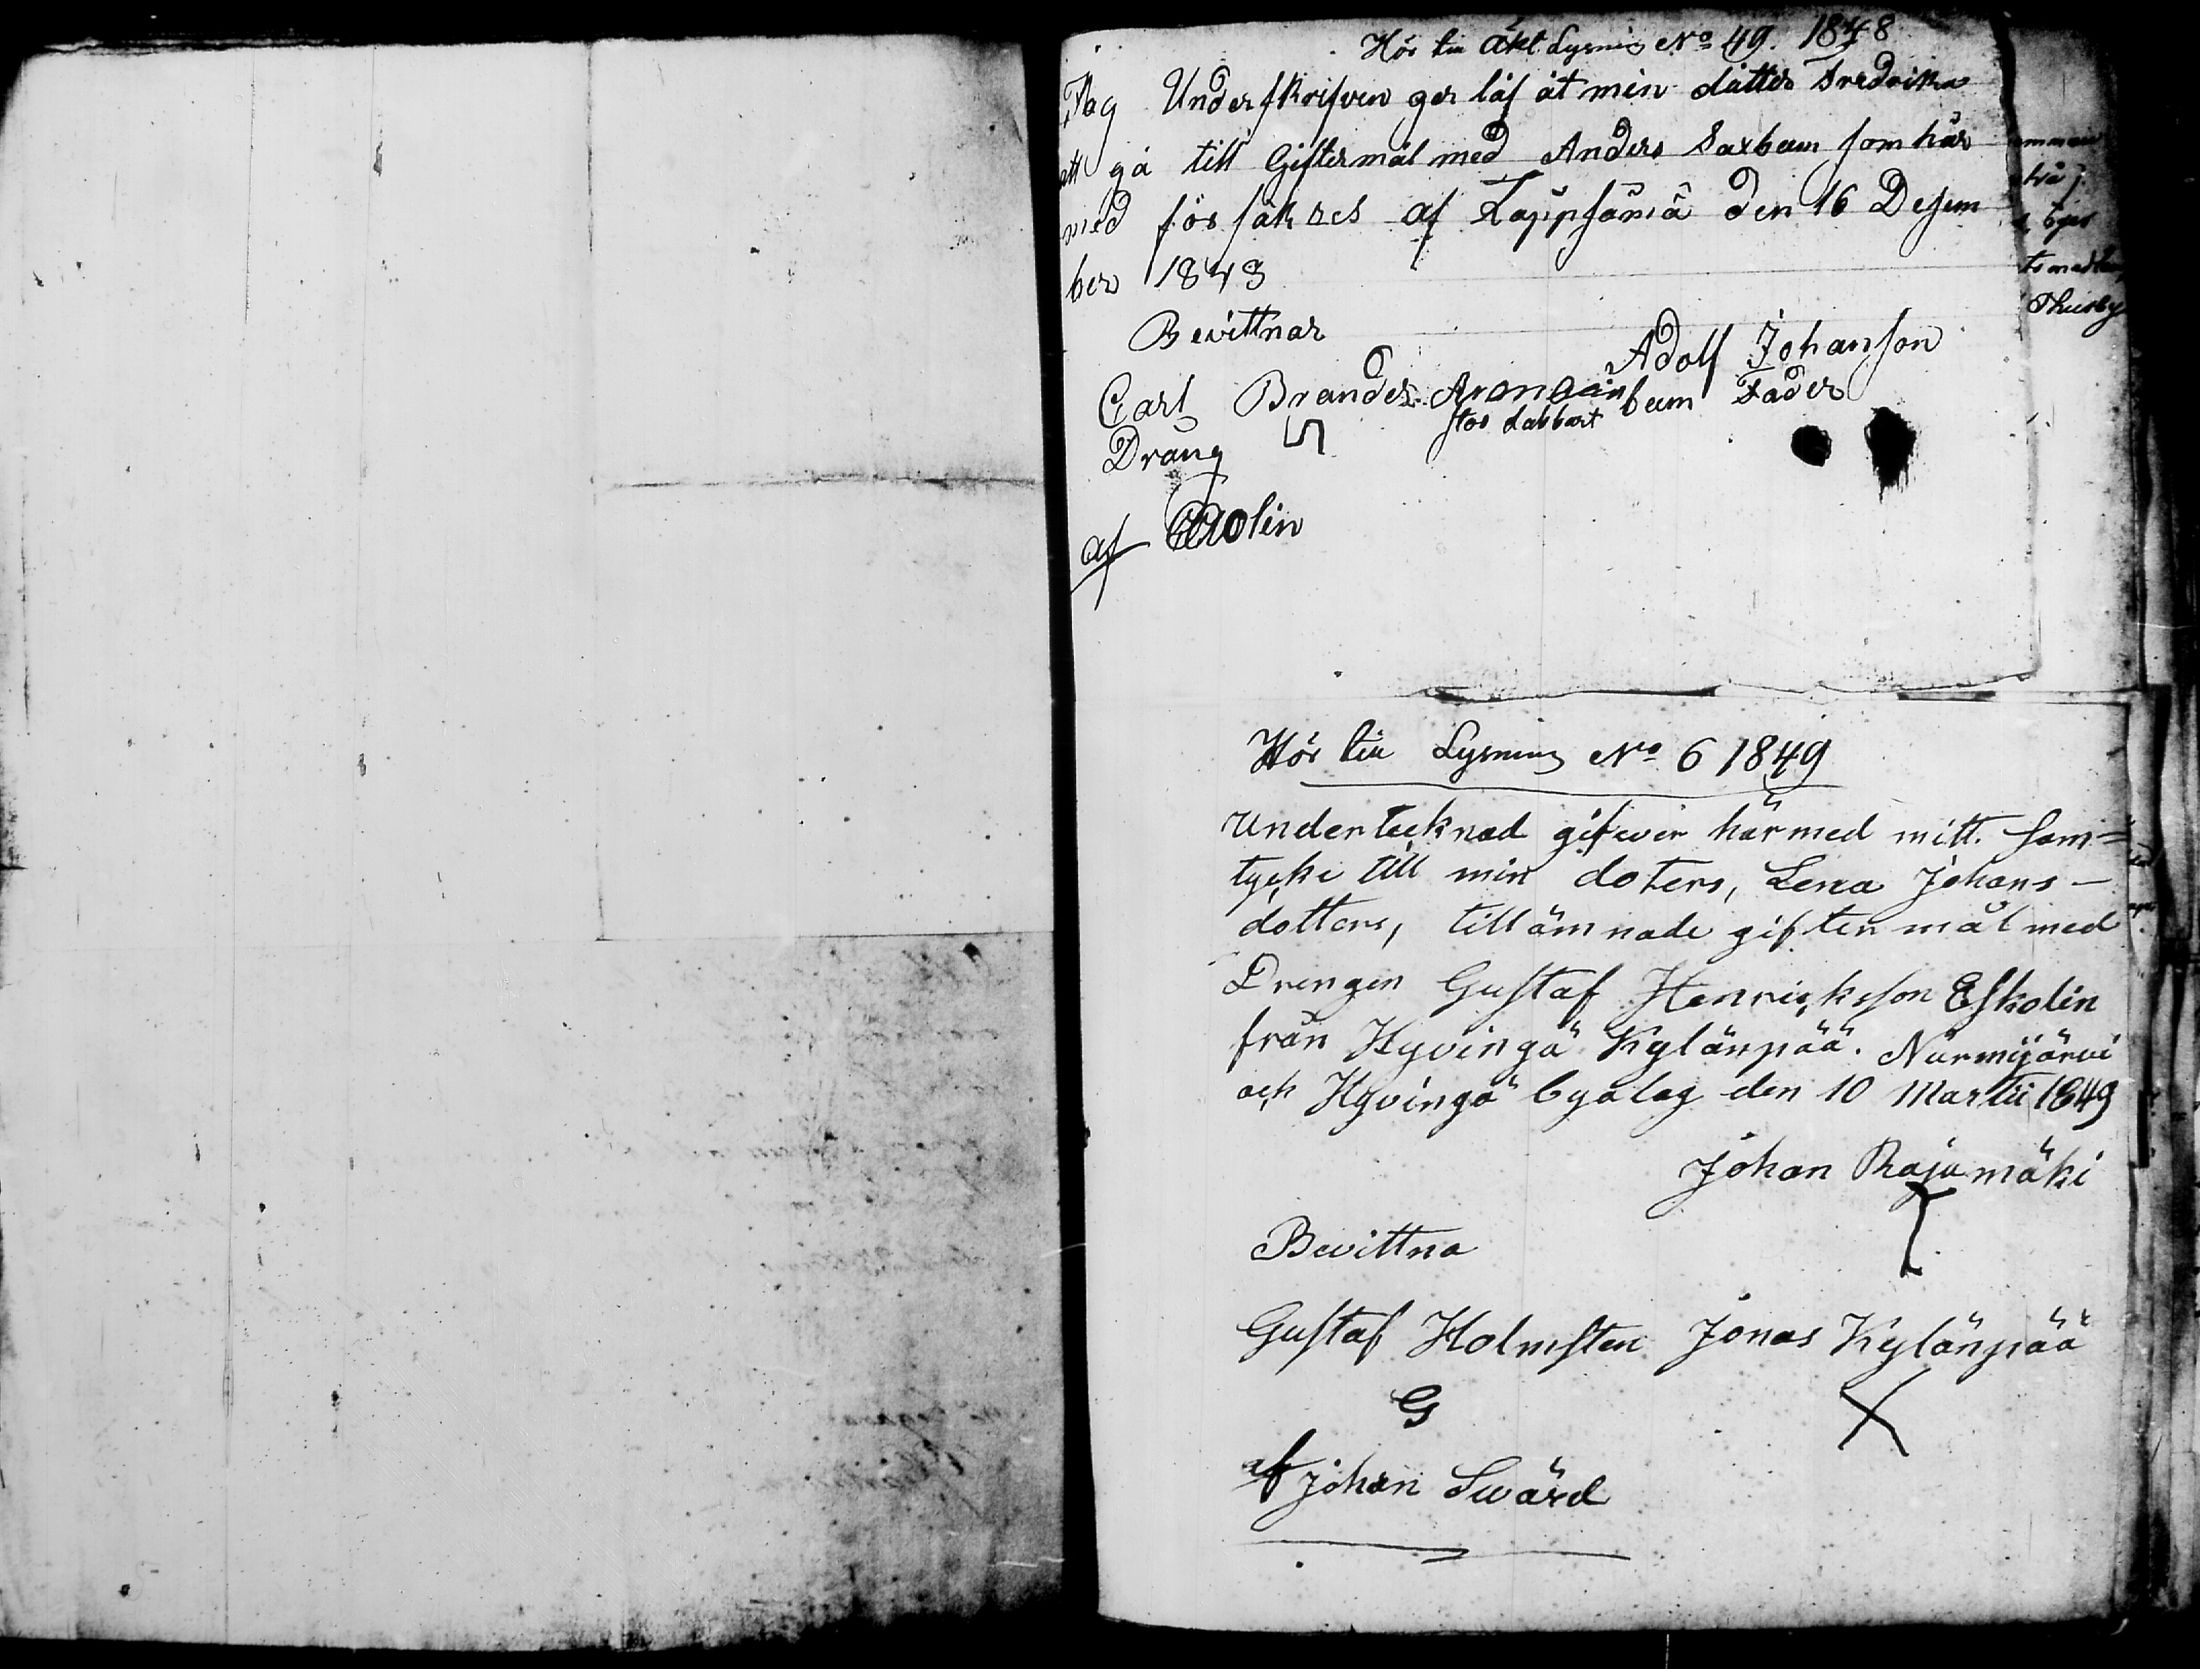 Hör till Äkt. Lysning No 49. 1848
Jag Underskrifven ger låf åt min dåtter Fredrika
att gå till Giftermål med Anders Saxbeum som här
med försäkres af Lappsamå den 16 Desem
ber 1848
Bevittnar
Adolf Johanson
Carl Brander. Aron beum Fader
Dräng
af Holin
ts med
Thusby
Hör till Lysning No 6 1849
Undertecknad gifwer härmed mitt sam=
tycke till min doters, Lena Johans-
dotters, tillämnade giftermål med
Drengen Gustaf Henricksson Eskolin
från Hyvingä Kylänpää. Nurmijärvi
och Hyvingä byalag den 10 Martii 1849
Johan Rajamäki
Bevittna
Gustaf Holmsten Jonas Kylänpää
G X
af Johan Swärd